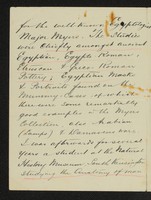 for the well known Egyptologist
Major Myers. The Studies
were chiefly amongst ancient
Egyptian, Egypto Roman,
Grecian, Greco Roman
Pottery, Egyptian Masks
& Portraits found on the
Mummy Cases of which
there are some remarkably
good examples in the Myers
Collection also Arabian
(Lamps) & Damascus ware
I was afterwards for several
years a student at the Natural
History Museum South Kensington
studying the Anatomy of